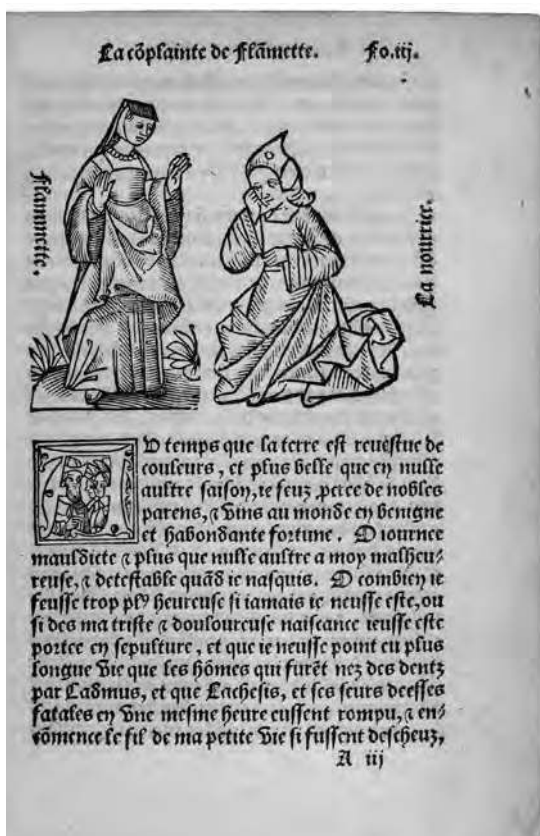 La cõplainte de Flãmette. Fo.iij.
Flammette.
La nourrice.
U temps que la terre est reuestue de
couleurs, et plus belle que en nulle
aultre saison, ie feuz ꝓcree de nobles
parens, ⁊ vins au monde en benigne
et habondante fortune. O iournee
mauldicte ⁊ plus que nulle aultre a moy malheu⸗
reuse, ⁊ detestable quãd ie nasquis. O combien ie
feusse trop plꝰ heureuse si iamais ie neusse este, ou
si des ma triste ⁊ douloureuse naiscance ieusse este
portee en sepulture, et que ie neusse point eu plus
longue vie que les hõmes qui furẽt nez des dentz
par Cadmus, et que Lachesis, et ses seurs deesses
fatales en vne mesme heure eussent rompu, ⁊ en⸗
cõmence le fil de ma petite vie si fussent descheuz,
A iij